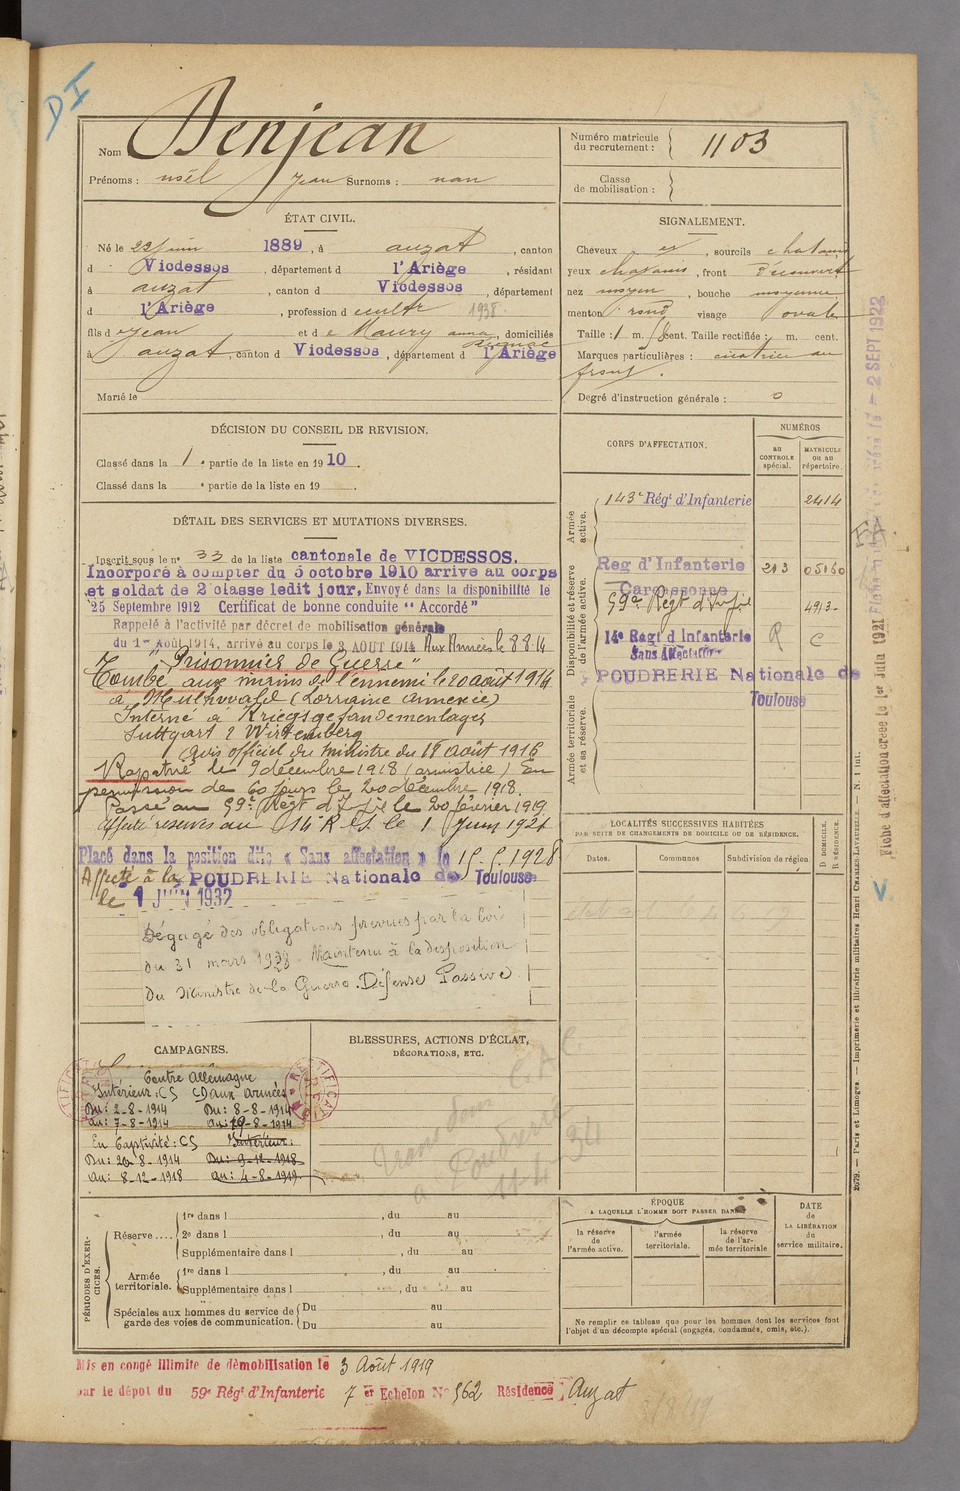 DI
Nom Denjean
Prénoms : noël Jean Surnoms : nan
Numéro matricule du recrutement : 1103
Classe de mobilisation :
ÉTAT CIVIL.
Né le 22 juin 1889, à auzat, canton
d Vicdessos, département d l'Ariège, résidant
à auzat, canton d Vicdessos, département
d l'Ariège, profession d cultr 1938.
fils d e Jean et d e Maury anna, domiciliés
à auzat, canton d Vicdessos, département d l'Ariège
Marié le
SIGNALEMENT.
Cheveux et, sourcils chatains
yeux chatains, front découvert
nez moyen, bouche moyenne
menton rond visage ovale
Taille : 1 m. cent. Taille rectifiée : m. cent.
Marques particulières : cicatrice au
front.
Degré d'instruction générale : 0
DÉCISION DU CONSEIL DE REVISION.
Classé dans la 1e partie de la liste en 1910.
Classé dans la e partie de la liste en 19
DÉTAIL DES SERVICES ET MUTATIONS DIVERSES.
Inscrit sous le n° 33 de la liste cantonale de VICDESSOS.
Incorporé à compter du 5 octobre 1910 arrivé au corps
et soldat de 2e classe ledit jour, Envoyé dans la disponibilité le
25 Septembre 1912 Certificat de bonne conduite "Accordé"
Rappelé à l'activité par décret de mobilisation générale
du 1er Août 1914, arrivé au corps le 2 AOUT 1914 Aux Armées le 8.8.14
"Prisonnier de Guerre"
Tombé aux mains de l'ennemi le 20 août 1914
à (Lorraine annexée)
Interné à Kriegsgefandemenlager
Suttgart 2 Wirtemberg
(avis officiel du ministre du 18 août 1916
Rapatrié le 9 décembre 1918 (armistice) En
permission de 60 jours le 20 décembre 1918.
Passé au 59e Régt d'Infie le 20 février 1919
affecté réserves au 14e R.I. le 1 Juin 1921
Placé dans la position dite « Sans affectation » le 15-5-1928
Affecté à la POUDRERIE Nationale de Toulouse
le 1 JUIN 1932
Dégagé des obligations prévues par la loi
du 31 mars 1928. Maintenu à la disposition
du Ministre de la Guerre. Défense Passive
CORPS D'AFFECTATION.
NUMÉROS
AU CONTROLE spécial.
MATRICULE ou au répertoire.
Armée active.
143e Régt d'Infanterie 2414
Disponibilité et réserve de l'armée active.
Reg d'Infanterie 213 05160
Carcassonne
59e Régt d'Infie 4913
14e Régt d'Infanterie R C
Sans Affectation
POUDRERIE Nationale de
Toulouse
Armée territoriale et sa réserve.
LOCALITÉS SUCCESSIVES HABITÉES
PAR SUITE DE CHANGEMENTS DE DOMICILE OU DE RÉSIDENCE.
Dates.
Communes
Subdivision de région.
D DOMICILE.
R RÉSIDENCE.
CAMPAGNES.
Contre Allemagne
Intérieur : CS CD aux armées
Du : 2-8-1914 Du : 8-8-1914
au : 7-8-1914 au : 19-8-1914
En Captivité : CS Intérieur :
Du : 20-8-1914 Du : 9-12-1918
au : 8-12-1918 au : 4-8-1919
BLESSURES, ACTIONS D'ÉCLAT,
DÉCORATIONS, ETC.
Poudrerie
PÉRIODES D'EXERCICES.
Réserve.... 1re dans l , du au
2e dans l , du au
Supplémentaire dans l , du au
Armée territoriale. 1re dans l , du au
Supplémentaire dans l , du au
Spéciales aux hommes du service de garde des voies de communication. Du au
Du au
ÉPOQUE
A LAQUELLE L'HOMME DOIT PASSER DANS
la réserve de l'armée active.
l'armée territoriale.
la réserve de l'armée territoriale
DATE de LA LIBÉRATION du service militaire.
Ne remplir ce tableau que pour les hommes dont les services font
l'objet d'un décompte spécial (engagés, condamnés, omis, etc.).
Mis en congé illimité de démobilisation le 3 Août 1919
par le dépôt du 59e Régt d'Infanterie 7 er Echelon N° 362 Résidence Auzat
2079. — Paris et Limoges. — Imprimerie et librairie militaires Henri CHARLES-LAVAUZELLE. — N. 1 int.
Fiche d'affectation créée le 1er Juin 1921
2 SEPT 1922